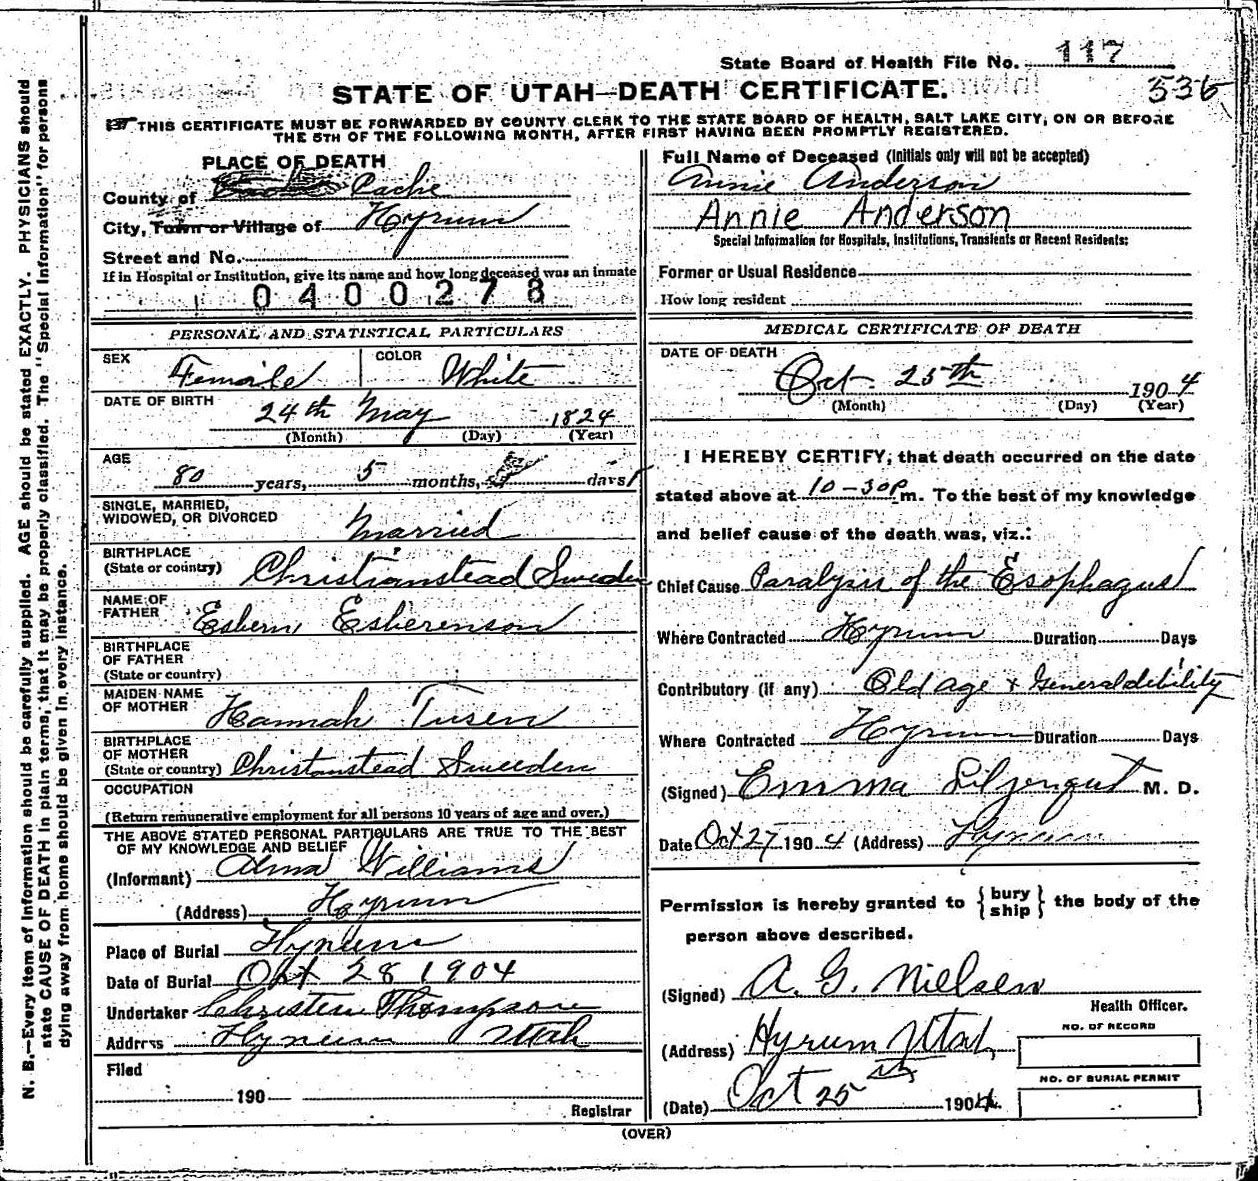 State Board of Health File No. 117
536
STATE OF UTAH—DEATH CERTIFICATE.
THIS CERTIFICATE MUST BE FORWARDED BY COUNTY CLERK TO THE STATE BOARD OF HEALTH, SALT LAKE CITY, ON OR BEFORE
THE 5TH OF THE FOLLOWING MONTH, AFTER FIRST HAVING BEEN PROMPTLY REGISTERED.
PLACE OF DEATH
County of Cache
City, Town or Village of Hyrum
Street and No.
If in Hospital or Institution, give its name and how long deceased was an inmate
0400278
PERSONAL AND STATISTICAL PARTICULARS
SEX Female COLOR White
DATE OF BIRTH 24th May 1824
(Month) (Day) (Year)
AGE
80 years, 5 months, days 1
SINGLE, MARRIED,
WIDOWED, OR DIVORCED Married
BIRTHPLACE
(State or country) Christianstead Sweeden
NAME OF
FATHER Esbern Esberenson
BIRTHPLACE
OF FATHER
(State or country)
MAIDEN NAME
OF MOTHER Hannah Tusen
BIRTHPLACE
OF MOTHER
(State or country) Christanstead Sweeden
OCCUPATION
(Return remunerative employment for all persons 10 years of age and over.)
THE ABOVE STATED PERSONAL PARTICULARS ARE TRUE TO THE BEST
OF MY KNOWLEDGE AND BELIEF
(Informant) Alma Williams
(Address) Hyrum
Place of Burial Hyrum
Date of Burial Oct 28 1904
Undertaker Christen Thompson
Address Hyrum Utah
Filed
190
Registrar
Full Name of Deceased (Initials only will not be accepted)
Annie Anderson
Annie Anderson
Special Information for Hospitals, Institutions, Transients or Recent Residents:
Former or Usual Residence
How long resident
MEDICAL CERTIFICATE OF DEATH
DATE OF DEATH
Oct. 25th 1904
(Month) (Day) (Year)
I HEREBY CERTIFY, that death occurred on the date
stated above at 10-30 P m. To the best of my knowledge
and belief cause of the death was, viz.:
Chief Cause Paralysis of the Esophagus
Where Contracted Hyrum Duration Days
Contributory (if any) Old age & General debility
Where Contracted Hyrum Duration Days
(Signed) Emma Liljenquist M. D.
Date Oct 27 1904 (Address) Hyrum
Permission is hereby granted to { bury ship } the body of the
person above described.
(Signed) A. G. Nielsen
Health Officer.
(Address) Hyrum Utah,
NO. OF RECORD
(Date) Oct 25th 1904
NO. OF BURIAL PERMIT
(OVER)
N. B.—Every item of information should be carefully supplied. AGE should be stated EXACTLY. PHYSICIANS should
state CAUSE OF DEATH in plain terms, that it may be properly classified. The "Special Information" for persons
dying away from home should be given in every instance.